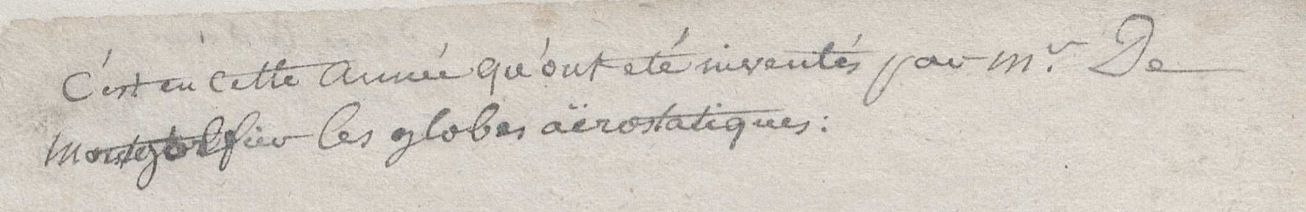 C'est en cette Année qu'ont eté inventés par mr. De
Montgolfier les globes aërostatiques: